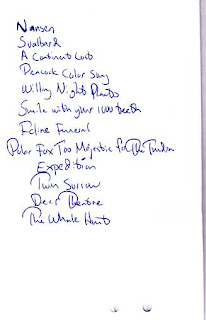 Nansen
Svalbard
A Continent Lost
Peacock Color Song
Willing Night Plants
Smile with your 1000 teeth
Feline Funeral
Polar Fox Too Majestic for The Tundra
Expedition
Twin Sorrow
Dear Theatre
The Whale Hunt